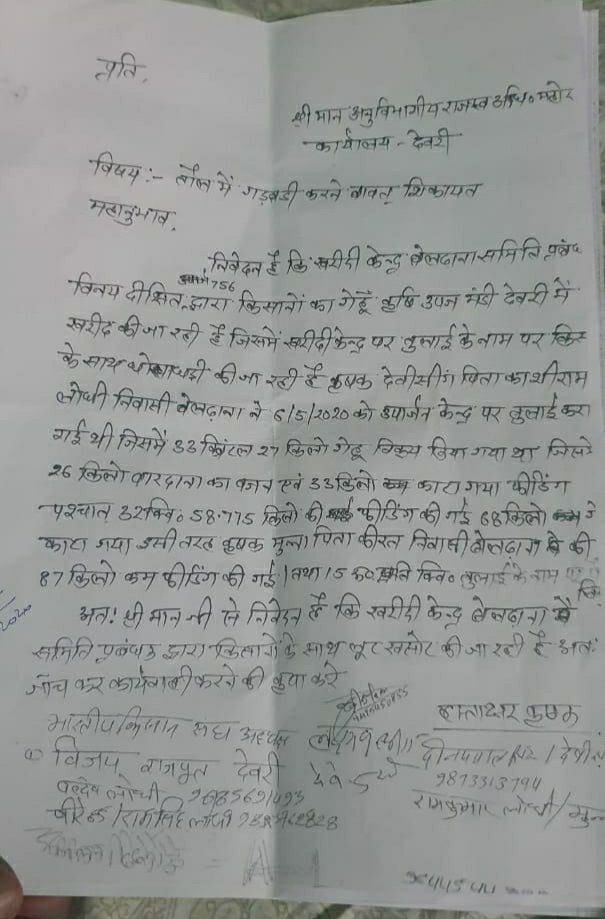 प्रति,
श्री मान अनुविभागीय राजस्व अधि० महोर
कार्यालय - देवरी
विषय :- तौल में गड़बडी करने बावत् शिकायत
महानुभाव,
निवेदन है कि खरीदी केन्द्र बेलढाना समिति प्रबंध
756
विनय दीक्षित द्वारा किसानों का गेहूँ कृषि उपज मंडी देवरी में
खरीद की जा रही है जिसमें खरीदी केन्द्र पर तुलाई के नाम पर किस
के साथ धोखाधडी की जा रही है कृषक देवीसींग पिता काशीराम
लोधी निवासी बेलढाना ने 6/5/2020 को उपार्जन केन्द्र पर तुलाई करा
गई थी जिसमें 33 क्विंटल 27 किलो गेहू विक्रय किया गया था जिसमे
26 किलो वारदाना का वजन एवं 33 किलो काटा गया फीडिंग
पश्चात 32 क्वि० 58.775 किलो की फीडिंग की गई 68 किलो
काटा गया इसी तरह कृषक मुन्ना पिता कीरत निवासी बेलढाना की
87 किलो कम फीडिंग की गई । तथा 15 रू० प्रति क्वि० तुलाई के नाम
अतः श्री मान जी से निवेदन है कि खरीदी केन्द्र बेलढाना में
समिति प्रबंधक द्वारा किसानों के साथ लूट खसोट की जा रही है अतः
जाँच कर कार्यवाही करने की कृपा करे
हस्ताक्षर कृषक
भारतीय किसान संघ अध्यक्ष
विजय राजपूत देवरी
9873313794
बलदेव लोधी
रामकुमार लोधी / मुन्
वीरेन्द्र / रामसिंह लोधी